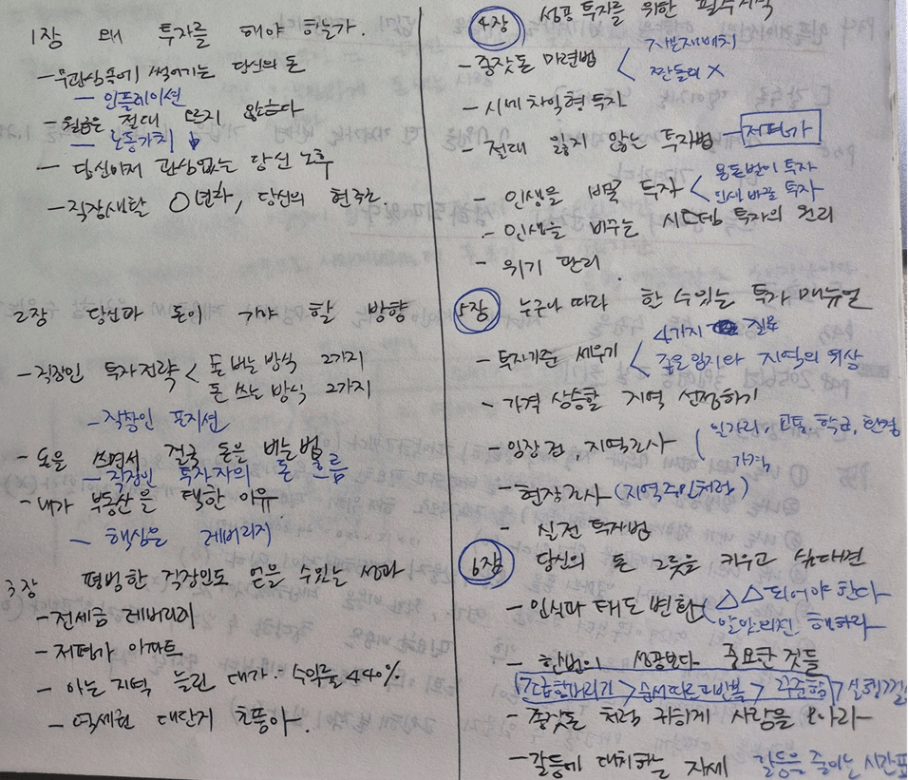 1장 왜 투자를 해야 하는가.
- 무관심속에 썩어가는 당신의 돈
- 인플레이션
- 월급은 절대 뜨지 않는다
- 노동가치 ↓
- 당신이 관심없는 당신 노후
- 직장생활 O년차, 당신의 현주소
2장 당신과 돈이 가야 할 방향
- 직장인 투자전략 < 돈 버는 방식 2가지
돈 쓰는 방식 2가지
- 직장인 포지션
- 돈을 쓰면서, 결국 돈을 버는 법
- 직장인 투자자의 돈 흐름
- 내가 부동산을 택한 이유
- 핵심은 레버리지
3장 평범한 직장인도 얻을 수있는 성과
- 전세금 레버리지
- 저평가 아파트
- 아는 지역 늘린 대가: 수익률 440%
- 역세권 대단지 초품아.
4장 성공 투자를 위한 필수지식
- 종잣돈 마련법 < 자본재배치
짠돌이 X
- 시세차익형 투자
- 절대 잃지 않는 투자법 - 저평가
- 인생을 바꿀 투자 < 용돈벌이 투자
인생 바꿀 투자
- 인생을 바꾸는 시스템 투자의 원리
- 위기 관리
5장 누구나 따라 할 수있는 투자 매뉴얼
- 투자기준 세우기 < 4가지 질문
좋은 입지와 지역의 위상
- 가격 상승할 지역 선정하기
- 임장 전, 지역조사 ( 일자리, 교통, 학군, 환경
가격
- 현장조사 (지역주민처럼)
- 실전 투자법
6장 당신의 돈 그릇을 키우고 싶다면
- 의심과 태도 변환 < △△되어야 한다
해라
- 한번의 성공보다 중요한 것들
> 순서 반복 > 꾸준함 >
- 종잣돈 처럼 귀하게 사람을 모아라
- 갈등에 대처하는 자세 갈등을 줄이는 시간